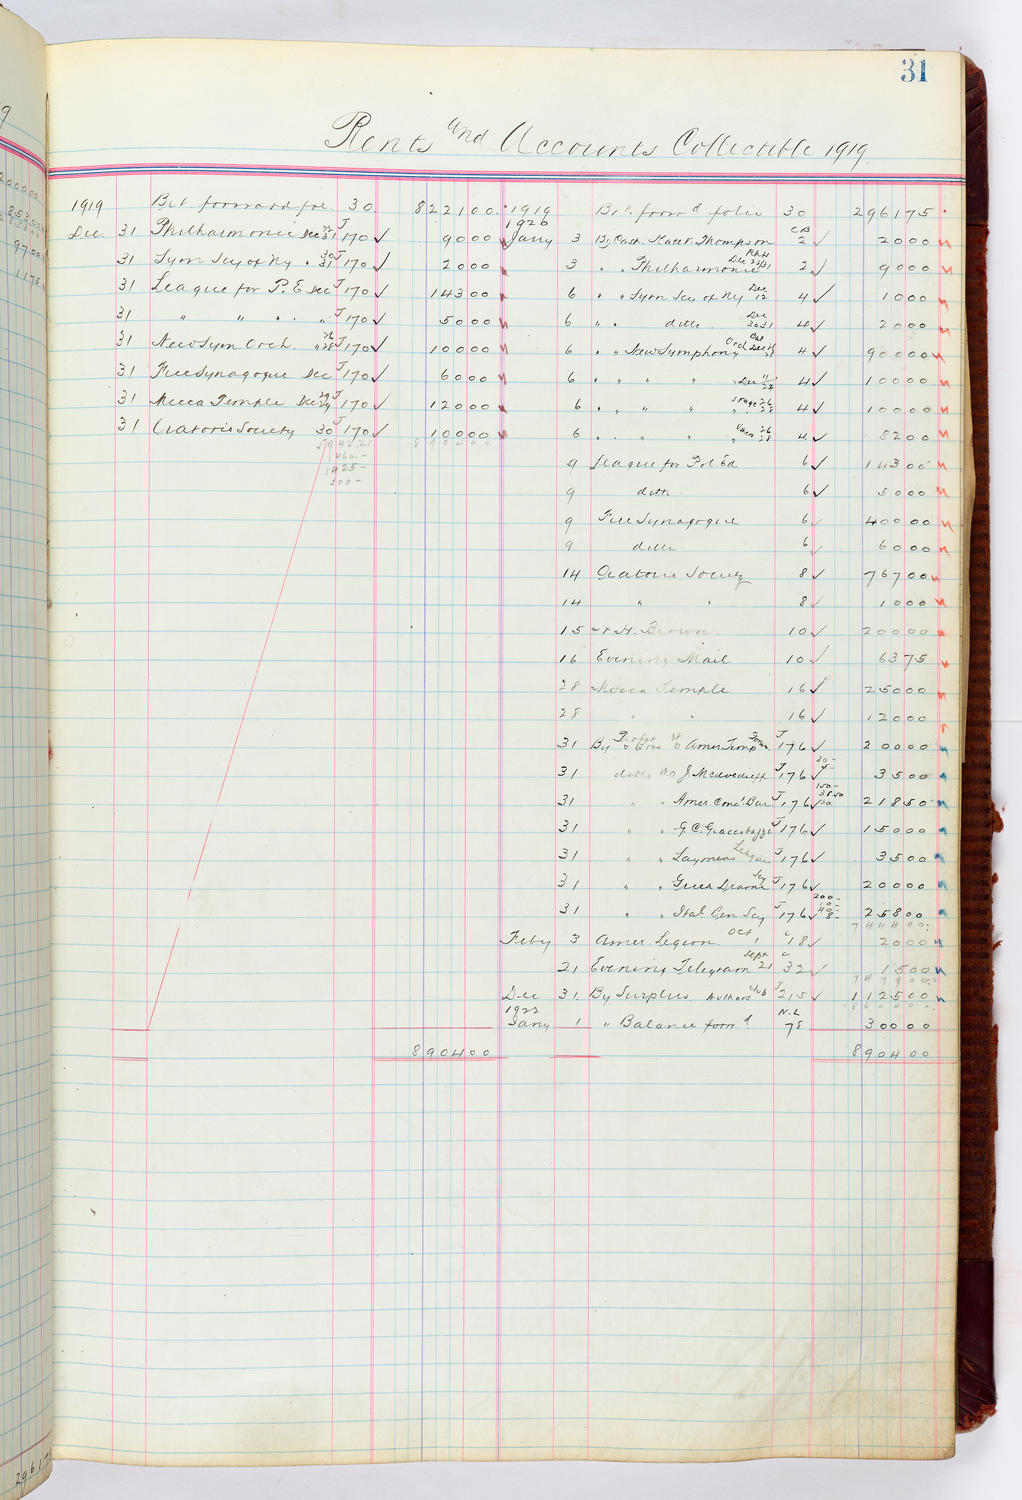 31
Rents and Accounts Collectible 1919
1919 Bot forward fol 30 822100
Dec. 31 Philharmonic Dec 31 J 170 ✓ 9000
31 Sym Socy of NY " 30 31 J 170 ✓ 2000
31 League for P. E Dec J 170 ✓ 14300
31 " " " " " J 170 ✓ 5000
31 New Sym Orch. " 26 28 J 170 ✓ 10000
31 Free Synagogue Dec J 170 ✓ 6000
31 Mecca Temple Dec 29 J 170 ✓ 12000
31 Oratorio Society 30 J 170 ✓ 10000
5942.25 890400
1460.-
1425-
300-
890400
1919 Bot. forwd folio 30 296175
1920
Jany 3 By Cash Kate V. Thompson CB 2 ✓ 2000
3 " " Philharmonic Dec 2 ✓ 9000
6 " " Sym Socy of NY Dec 12 4 ✓ 1000
6 " " ditto Dec 30 31 4 ✓ 2000
6 " " New Symphony Orch Bal Dec 26 28 4 ✓ 90000
6 " " " " " Dec 11 4 ✓ 10000
6 " " " " Stage 26 28 4 ✓ 10000
6 " " " " " 26 28 4 ✓ 8200
9 League for Pol. Ed 6 ✓ 14300
9 ditto 6 ✓ 5000
9 Free Synagogue 6 ✓ 40000
9 ditto 6 ✓ 6000
14 Oratorio Society 8 ✓ 76700
14 " " 8 ✓ 1000
15 H. Brown 10 ✓ 20000
16 Evening Mail 10 ✓ 6375
28 Mecca Temple 16 ✓ 25000
28 " " 16 ✓ 12000
31 By Profit & Loss W O Amer. Temp J 176 ✓ 20000
31 ditto WO J Medvedieff J 176 ✓ 30- 5- 3500
31 " " Amer. Conc. Bur J 176 ✓ 150- 38.50 30 21850
31 " " G C. J 176 ✓ 15000
31 " " Laymens League J 176 ✓ 3500
31 " " Greek J 176 ✓ 20000
31 " " Ital. Gen. Socy J 176 ✓ 200- 10- 48- 25800
744400
Feby 3 Amer. Legion Oct 1 C 18 ✓ 2000
21 Evening Telegram Sept 21 C 32 ✓ 1500
747900
Dec 31. By Surplus Authors Club J 215 ✓ 112500
860400
1922
Jany 1 " Balance forwd N.L 78 30000
890400